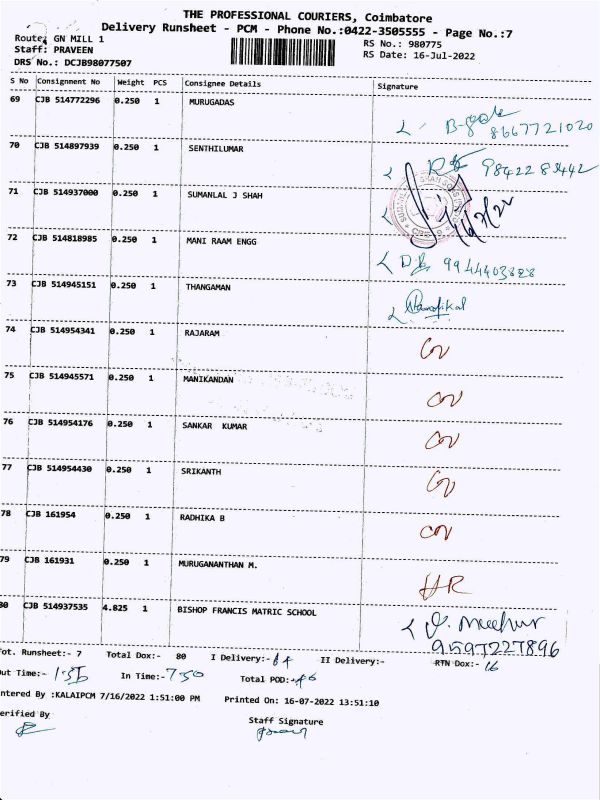 THE PROFESSIONAL COURIERS, Coimbatore
Delivery Runsheet - PCM - Phone No.:0422-3505555 - Page No.:7
Route: GN MILL 1
RS No.: 980775
Staff: PRAVEEN
RS Date: 16-Jul-2022
DRS No.: DCJB98077507
S No Consignment No Weight PCS Consignee Details Signature
69 CJB 514772296 0.250 1 MURUGADAS
8667721020
70 CJB 514897939 0.250 1 SENTHILUMAR
71 CJB 514937000 0.250 1 SUMANLAL J SHAH
16/7/22
72 CJB 514818985 0.250 1 MANI RAAM ENGG
9944403828
73 CJB 514945151 0.250 1 THANGAMAN
74 CJB 514954341 0.250 1 RAJARAM
75 CJB 514945571 0.250 1 MANIKANDAN
76 CJB 514954176 0.250 1 SANKAR KUMAR
77 CJB 514954430 0.250 1 SRIKANTH
78 CJB 161954 0.250 1 RADHIKA B
79 CJB 161931 0.250 1 MURUGANANTHAN M.
HR
80 CJB 514937535 4.825 1 BISHOP FRANCIS MATRIC SCHOOL
9597227896
Tot. Runsheet:- 7 Total Dox:- 80 I Delivery:- 64 II Delivery:- RTN Dox:- 16
Out Time:- In Time:- 7.50 Total POD:-
Entered By :KALAIPCM 7/16/2022 1:51:00 PM Printed On: 16-07-2022 13:51:10
Verified By
Staff Signature